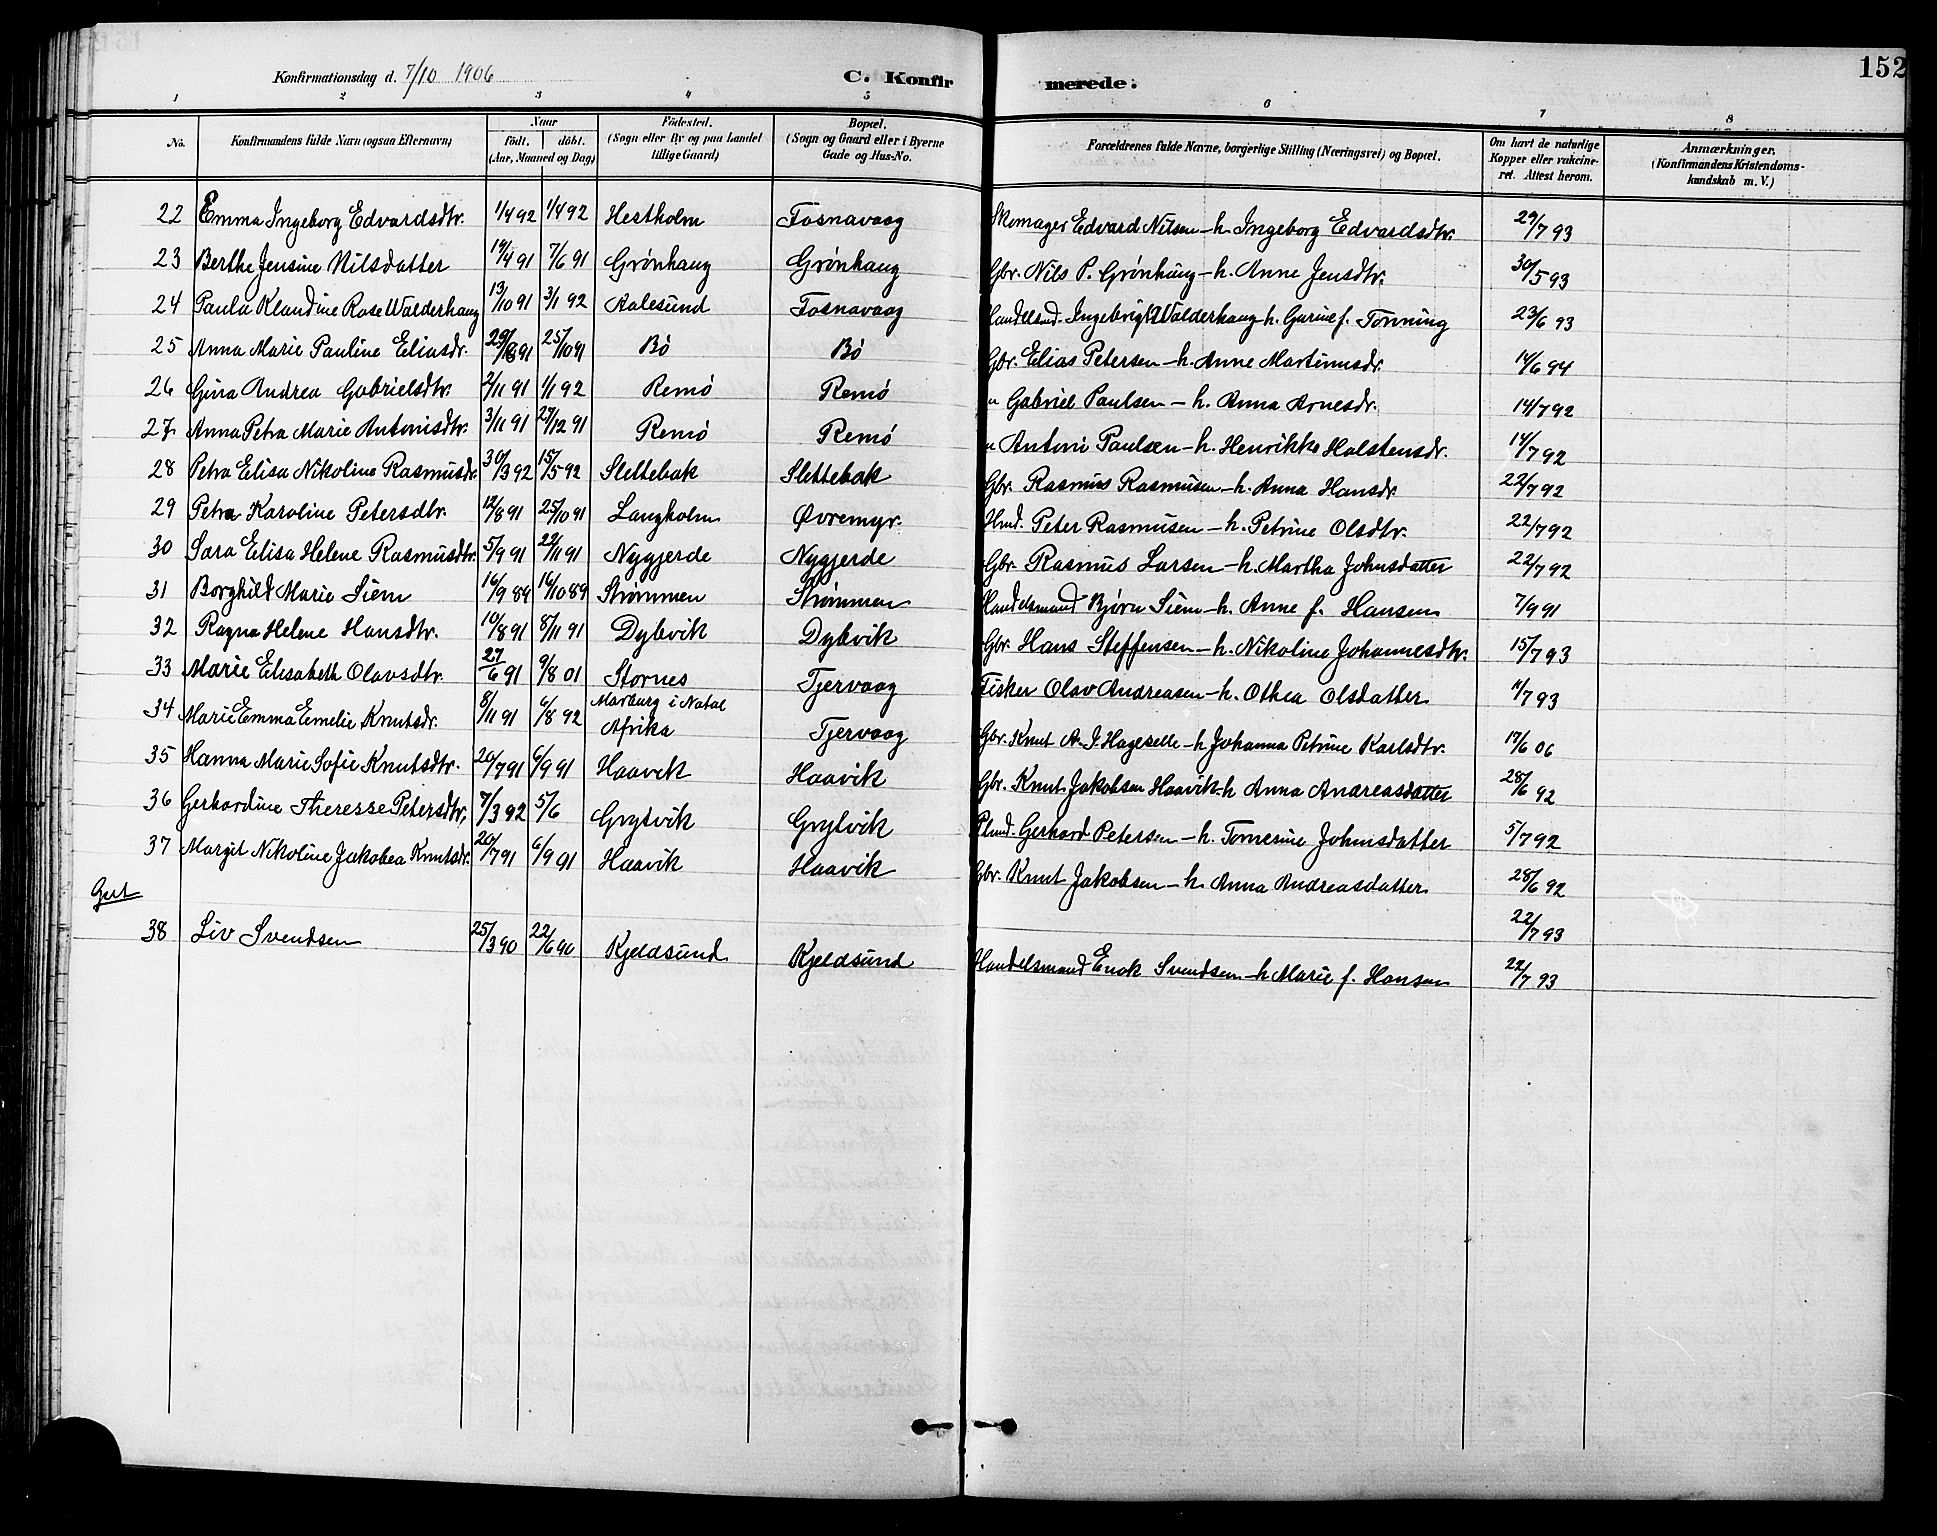 152
Konfirmationsdag d. 7/10 1906
C. Konfirmerede.
1 2 3 4 5 6 7 8
No. | Konfirmandens fulde Navn (ogsaa Efternavn) | Naar født. døbt. (Aar, Maaned og Dag) | Fødested. (Sogn eller By og paa Landet tillige Gaard) | Bopæl. (Sogn og Gaard eller i Byerne Gade og Hus-No. | Forældrenes fulde Navne, borgerlige Stilling (Næringsvei) og Bopæl. | Om havt de naturlige Kopper eller vakcineret. Attest herom. | Anmærkninger. (Konfirmandens Kristendomskundskab m. V.)
22 Emma Ingeborg Edvardsdtr. 1/4 92 1/4 92 Hestholm Fosnavaag Skomager Edvard Nilsen - h. Ingeborg Edvardsdtr. 29/7 93
23 Berthe Jensine Nilsdatter 19/4 91 7/6 91 Grønhaug Grønhaug Gbr. Nils P. Grønhaug - h. Anne Jensdtr. 30/5 93
24 Paula Klaudine Rose Walderhaug 13/10 91 3/1 92 Aalesund Fosnavaag Handelsmd. Ingebrigt Walderhaug h. Gurine f. Tonning 23/6 93
25 Anna Marie Pauline Eliasdr. 29/ 91 25/10 91 Bø Bø Gbr. Elias Petersen - h. Anne Martinusdr. 14/6 94
26 Gina Andrea Gabrielsdtr. 2/11 91 1/1 92 Remø Remø " Gabriel Paulsen - h. Anna Arnesdr. 14/7 92
27 Anna Petra Marie Antonisdtr. 3/11 91 27/12 91 Remø Remø " Antoni Paulsen - h. Henrikke Holstensdr. 14/7 92
28 Petra Elisa Nikoline Rasmusdr. 30/3 92 15/5 92 Slettebak Slettebak Gbr. Rasmus Rasmusen - h. Anna Hansdr. 22/7 92
29 Petra Karoline Petersdtr. 12/8 91 25/10 91 Langholm Øvremyr. Hmd. Peter Rasmusen - h. Petrine Olsdtr. 22/7 92
30 Sara Elisa Helene Rasmusdtr. 5/9 91 22/11 91 Nygjerde Nygjerde Gbr. Rasmus Larsen - h. Martha Johnsdatter 22/7 92
31 Borghild Marie Siem 16/9 89 16/10 89 Strømmen Strømmen Handelsmand Bjørn Siem - h. Anne f. Hansen 7/9 91
32 Ragna Helene Hansdtr. 10/8 91 8/11 91 Dybvik Dybvik Gbr. Hans Steffensen - h. Nikoline Johannesdtr. 15/7 93
33 Marie Elisabeth Olavsdtr. 27/6 91 9/8 01 Stornes Tjervaag Fisker Olav Andreasen - h. Othea Olsdatter 11/7 93
34 Marie Emma Emelie Knutsdr. 8/11 91 6/8 92 Marburg i Natal Afrika Tjervaag Gbr. Knut A. J. Hageselle - h. Johanna Petrine Karlsdtr. 17/6 06
35 Hanna Marie Sofie Knutsdtr. 20/7 91 6/9 91 Haavik Haavik Gbr. Knut Jakobsen Haavik - h Anna Andreasdatter 28/6 92
36 Gerhardine Theresse Petersdtr, 7/3 92 5/6 Grytvik Grytvik Plmd. Gerhard Petersen - h. Tomesine Johnsdatter 5/7 92
37 Margit Nikoline Jakobea Knutsdr. 20/7 91 6/9 91 Haavik Haavik Gbr. Knut Jakobsen - h. Anna Andreasdatter 28/6 92
Gut
22/7 93
38 Liv Svendsen 25/3 90 22/6 90 Kjeldsund Kjeldsund Handelsmand Enok Svendsen - h Marie f. Hansen 22/7 93